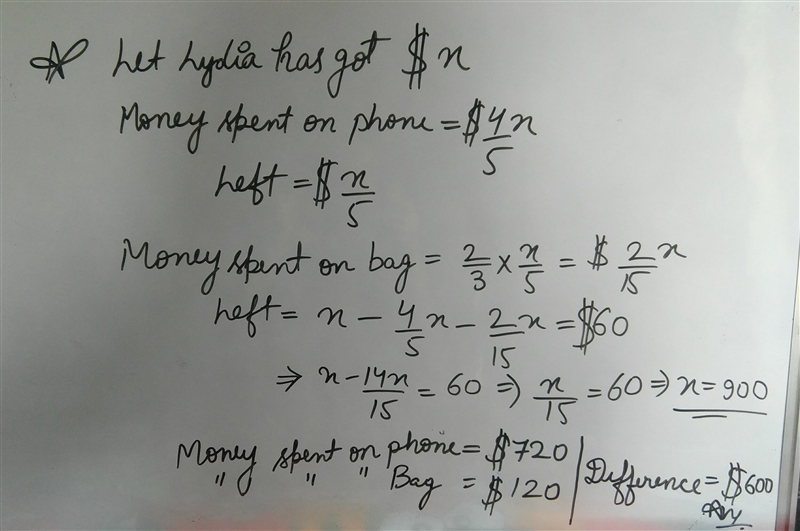 Let Lydia has got $x
Money spent on phone = $4x/5
Left = $x/5
Money spent on bag = 2/3 × x/5 = $ 2/15 x
Left = x - 4/5 x - 2/15 x = $60
⇒ x - 14x/15 = 60 ⇒ x/15 = 60 ⇒ x = 900
Money spent on phone = $720
" " " Bag = $120
Difference = $600
Ans